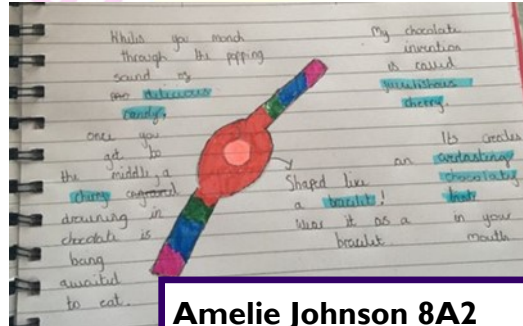 Whilis you monch
through the popping
sound of
delicious
candy,
once you
get to
the middle, a
cherry
drowning in
chocolate is
bang
awaitid
to eat.
My chocolate
invention
is called
cherry.
Shaped like
a bracelet!
Wear it as a
bracelet.
Its creates
an everlasting
chocolaty
in your
mouth
Amelie Johnson 8A2